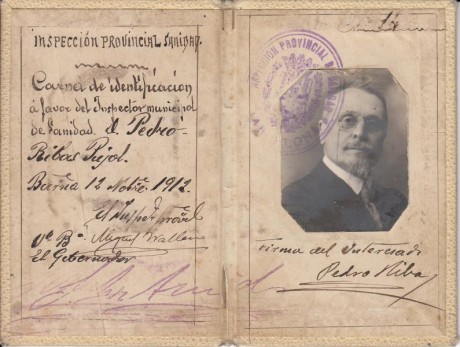 INSPECCIÓN PROVINCIAL SANIDAD.
Carnet de identificación
á favor del Inspector municipal
de Sanidad. D. Pedro
Ribas Pujol.
Barna 12 Nbre. 1912.
El Inspector provál
Vº Bº Miguel Trallero
El Gobernador
INSPECCIÓN PROVINCIAL
Firma del Interesado
Pedro Riba